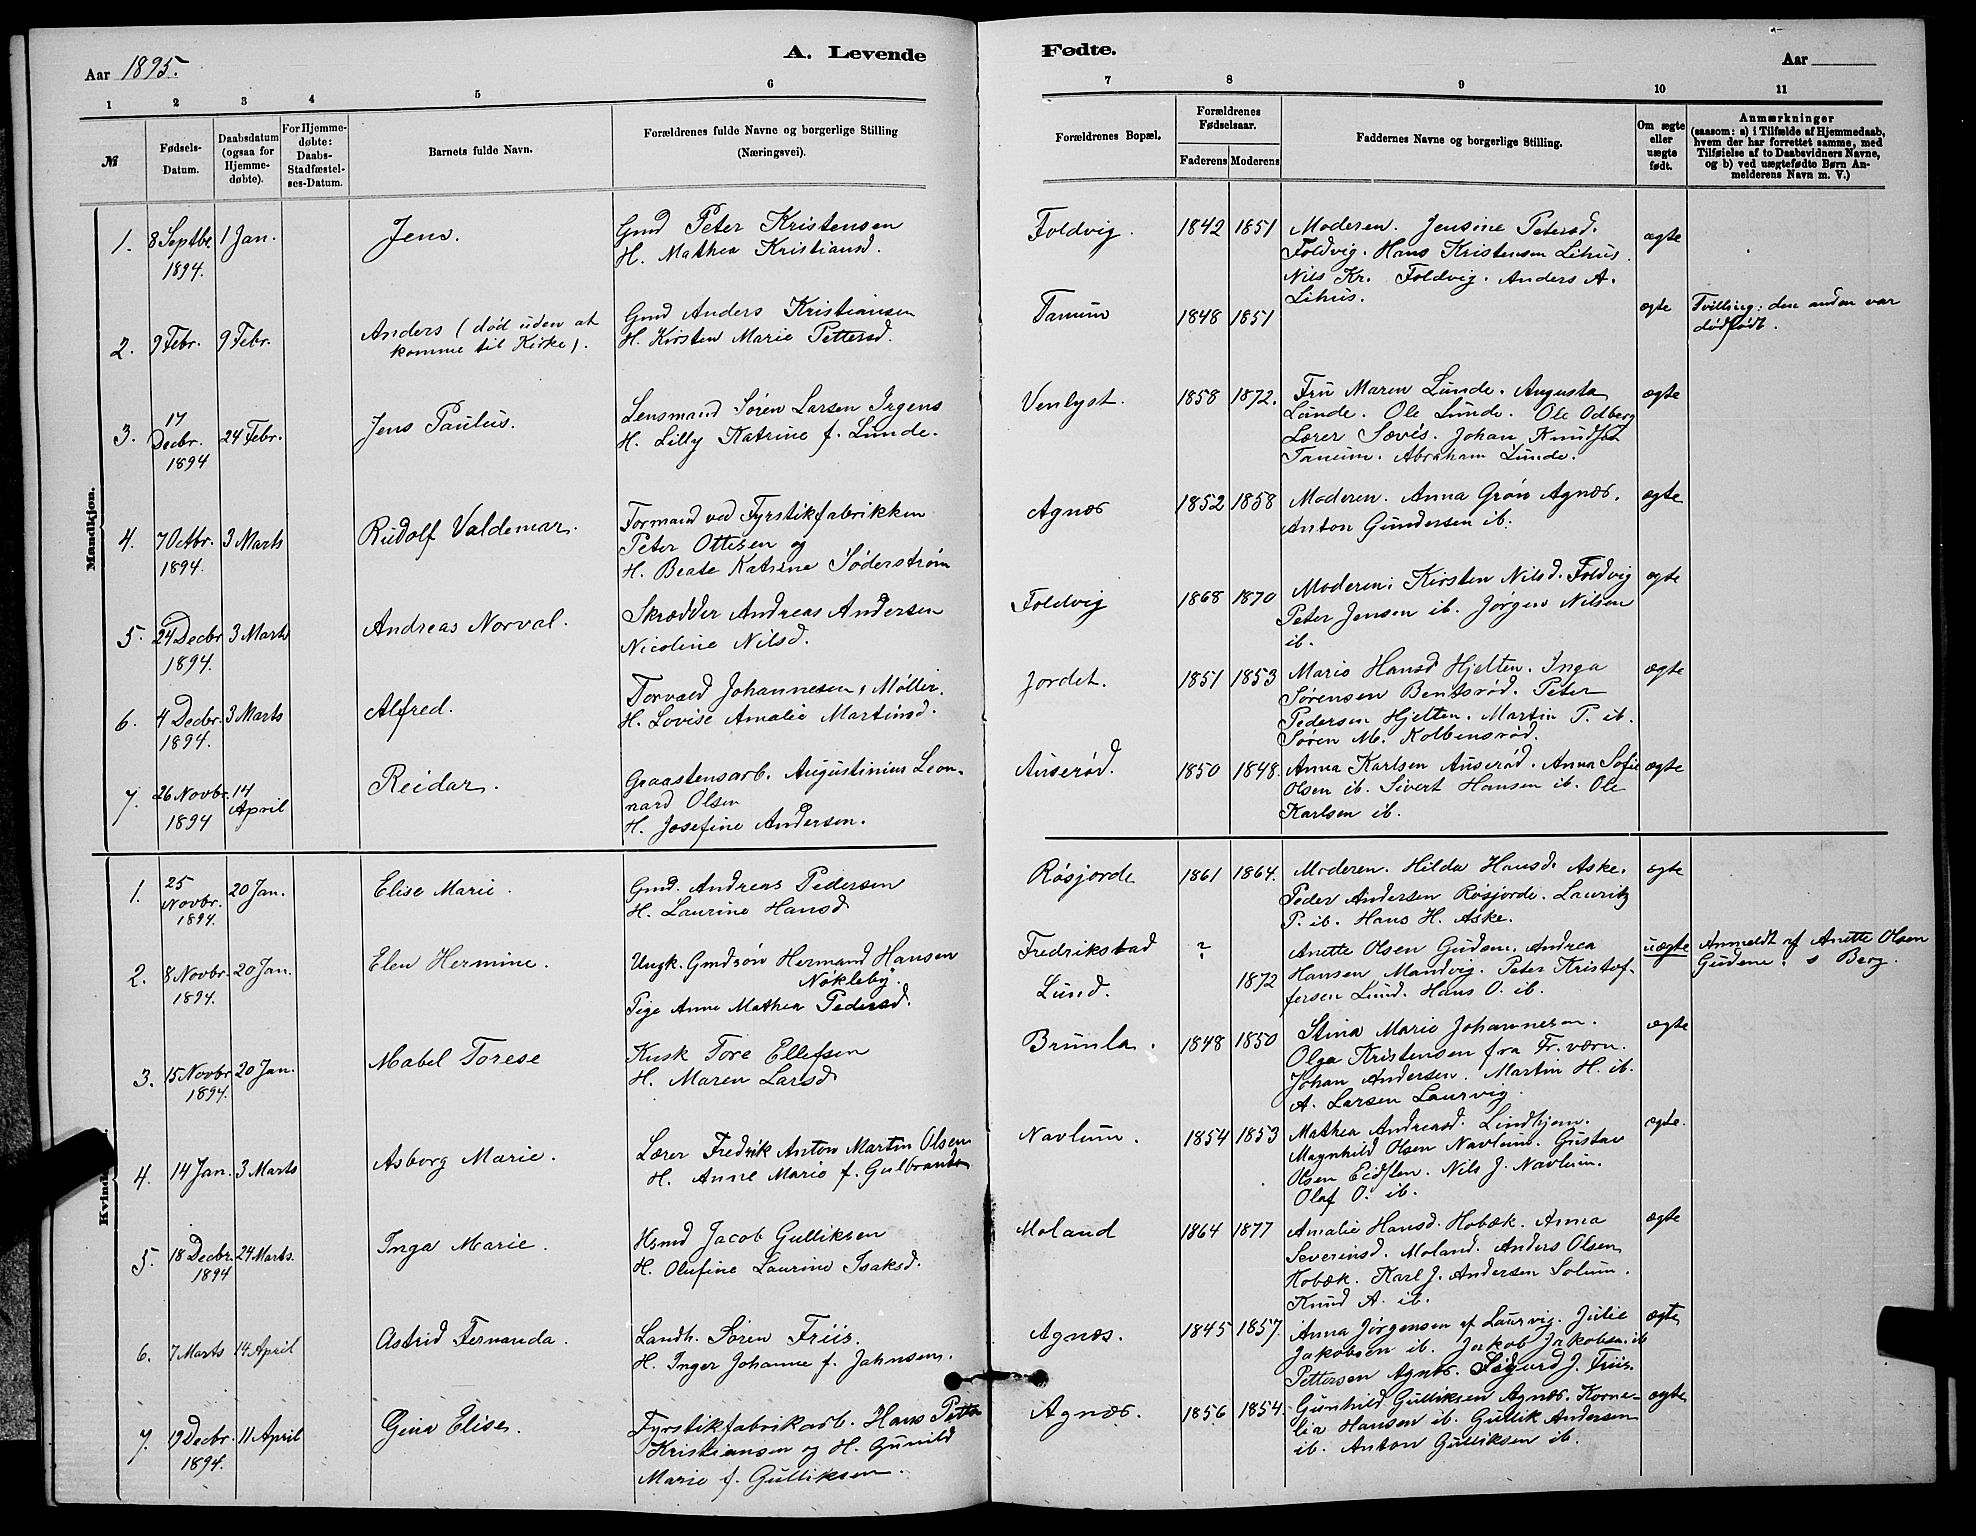 A. Levende
Fødte.
Aar 1895.
Aar
1 2 3 4 5 6 7 8 9 10 11
№
Fødsels-
Datum.
Daabsdatum
(ogsaa for
Hjemme-
døbte).
For Hjemme-
døbte:
Daabs-
Stadfæstel-
ses-Datum.
Barnets fulde Navn.
Forældrenes fulde Navne og borgerlige Stilling
(Næringsvei).
Forældrenes Bopæl.
Forældrenes
Fødselsaar.
Faderens Moderens
Faddernes Navne og borgerlige Stilling.
Om ægte
eller
uægte
født.
Anmærkninger
(saasom: a) i Tilfælde af Hjemmedaab,
hvem der har forrettet samme, med
Tilføielse af to Daabsvidners Navne,
og b) ved uægtefødte Børn An-
melderens Navn m. V.)
Mandkjøn.
1. 8 Septbr. 1 Jan.
1894.
Jens.
Gmd Peter Kristensen
H. Mathea Kristiansd.
Foldvig. 1842 1851
Moderen. Jensine Petersd.
Foldvig. Hans Kristensen Lihus.
Nils Kr. Foldvig. Anders A.
Lihus.
ægte
2. 9 Febr. 9 Febr.
Anders (død uden at
komme til Kirke).
Gmd Anders Kristiansen
H. Kirsten Marie Pettersd.
Tanum 1848 1851
ægte
Tvilling: den anden var
dødfødt.
3. 17
Decbr. 24 Febr.
1894
Jens Paulus.
Lensmand Søren Larsen Irgens
H. Lilly Katrine f. Lunde.
Venlyst. 1858 1872.
Fru Maren Lunde. Augusta
Lunde. Ole Lunde. Ole Odberg
Lærer Sævis. Johan Knudsen
Tanum. Abraham Lunde.
ægte
4. 7 Octbr. 3 Marts
1894.
Rudolf Valdemar.
Formand ved Fyrstikfabrikken
Peter Ottesen og
H. Beate Katrine Söderström
Agnæs 1852 1858
Moderen. Anna Grøn Agnæs.
Anton Gundersen ib.
ægte
5. 24 Decbr 3 Marts
1894.
Andreas Norval.
Skrædder Andreas Andersen
Nicoline Nilsd.
Foldvig 1868 1870
Moderen; Kirsten Nilsd. Foldvig
Peter Jensen ib. Jørgen Nilsen
ib.
ægte
6. 4 Decbr. 3 Marts
1894.
Alfred.
Torvald Johannesen, Møller.
H. Lovise Amalie Martinsd.
Jordet. 1851 1853
Marie Hansd Hjelten. Inga
Sørensen Bentsrød. Peter
Pedersen Hjelten. Martin P. ib.
Søren M. Kolbensrød.
ægte
7. 26 Novbr. 14
1894 April
Reidar.
Graastensarb. Augustinius Leon-
nard Olsen
H. Josefine Andersen.
Auserød. 1850 1848.
Anna Karlsen Auserød. Anna Sofie
Olsen ib. Sivert Hansen ib. Ole
Karlsen ib.
ægte
Kvind
1. 25
Novbr. 20 Jan.
1894.
Elise Marie.
Gmd. Andreas Pedersen
H. Laurine Hansd
Røsjorde 1861 1864.
Moderen. Hilda Hansd. Aske.
Peder Andersen Røsjorde. Lauritz
P. ib. Hans H. Aske.
ægte
2. 8 Novbr. 20 Jan.
1894.
Elen Hermine.
Ungk. Gmdsøn Hermand Hansen
Nökleby
Pige Anne Mathea Pedersd.
Fredrikstad ?
Lund. 1872
Anette Olsen Gudene. Andrea
Hansen Mandvig. Peter Kristof-
fersen Lund. Hans O. ib.
uægte
Anmeldt af Anette Olsen
Gudene. s Berg.
3. 15 Novbr 20 Jan.
1894.
Mabel Torese
Kusk Tore Ellefsen
H. Maren Larsd
Brunla. 1848 1850
Stina Marie Johannesen.
Olga Kristensen fra Fr. værn.
Johan Andersen. Martin H. ib.
A. Larsen Laurvig.
ægte
4. 14 Jan. 3 Marts
Asborg Marie.
Lærer Fredrik Anton Martin Olsen
H. Anne Marie f. Gulbrands
Navlum. 1854 1853
Mathea Andreasd. Lindhjem.
Magnhild Olsen Navlum. Gustav
Olsen Eidsten. Nils J. Navlum.
Olaf O. ib.
ægte.
5. 18 Decbr. 24 Marts.
1894
Inga Marie.
Hsmd Jacob Gulliksen
H. Olufine Laurine Isaksd.
Moland 1864 1877
Amalie Hansd. Hobæk. Anna
Severinsd. Moland. Anders Olsen
Hobæk. Karl J. Andersen Solum.
Knud A. ib.
ægte
6. 7 Marts 14 April
Astrid Fernanda.
Landh. Søren Friis.
H. Inger Johanne f. Jahnsen.
Agnæs. 1845 1857.
Anna Jørgensen af Laurvig. Julie
Jakobsen ib. Jakob Jakobsen ib
Pettersen Agnæs. Sigurd J. Friis.
ægte
7. 19 Decbr. 11 April
1894.
Gina Elise.
Fyrstikfabrikarb. Hans Petter
Kristiansen og H. Gunild
Marie f. Gulliksen.
Agnæs. 1856 1854.
Gunhild Gulliksen Agnæs. Korne-
lia Hansen ib. Gullik Andersen
ib. Anton Gulliksen ib.
ægte